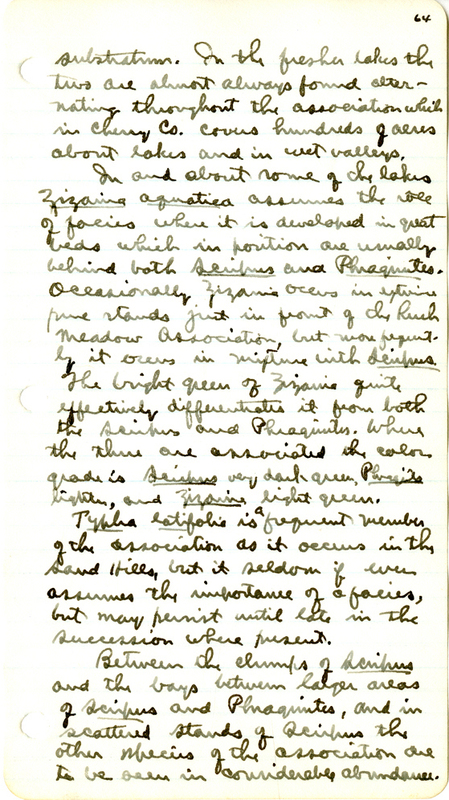 64
substratum. In the fresher lakes the
two are almost always found alter-
nating throughout the association which
in Cherry Co. covers hundreds of acres
about lakes and in wet valleys.
In and about some of the lakes
Zizania aquatica assumes the role
of facies where it is developed in great
beds which in position are usually
behind both Scirpus and Phragmites.
Occasionally Zizania occurs in extensive
pure stands just in front of the Rush
Meadow Association, but more frequent-
ly it occurs in mixture with Scirpus.
The bright green of Zizania quite
effectively differentiates it from both
the Scirpus and Phragmites. Where
the three are associated the color
grade is Scirpus very dark green, Phragmites
lighter, and Zizania light green.
Typha latifolia is a frequent member
of the association as it occurs in the
Sand Hills, but it seldom if ever
assumes the importance of a facies,
but may persist until late in the
succession where present.
Between the clumps of Scirpus
and the bays between larger areas
of Scirpus and Phragmites, and in
scattered stands of Scirpus the
other species of the association are
to be seen in considerable abundance.